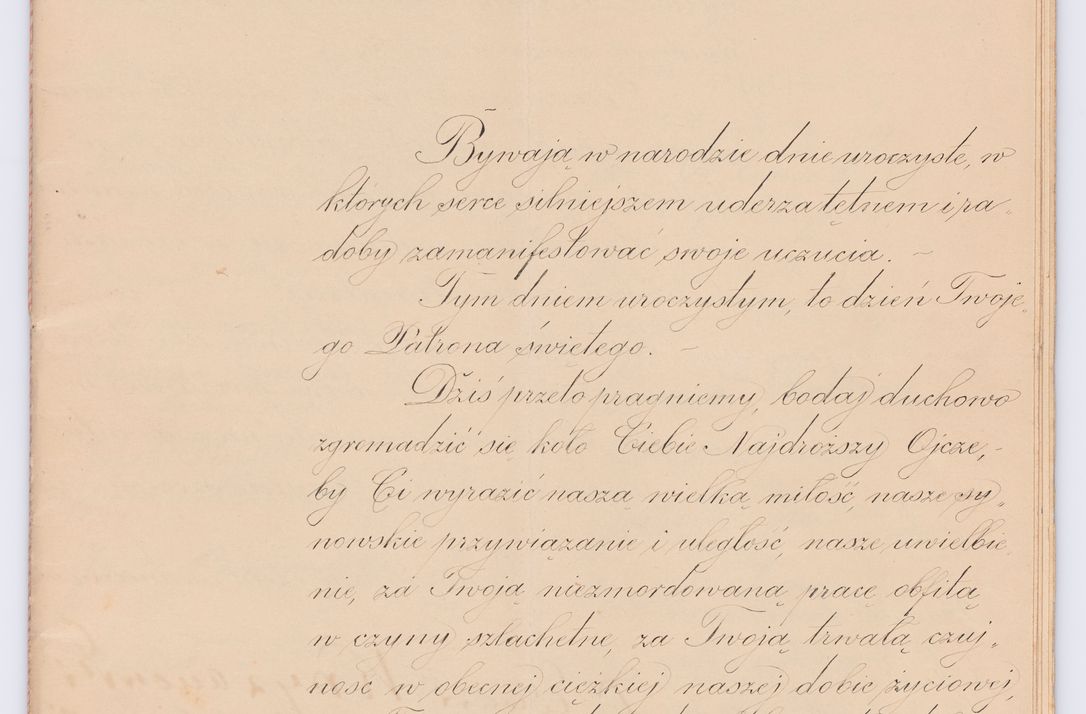 Bywają w narodzie dnie uroczyste, w
których serce silniejszem uderza tętnem i ra„
doby zamanifestować swoje uczucia. –
Tym dniem uroczystym, to dzień Twoje„
go Patrona świętego. –
Dziś przeto pragniemy, bodaj duchowo
zgromadzić się koło Ciebie Najdroższy Ojcze, –
by Ci wyrazić naszą wielką miłość, nasze sy„
nowskie przywiązanie i uległość, nasze uwielbie„
nie, za Twoją niezmordowaną pracę obfitą
w czyny szlachetne, za Twoją trwałą czuj„
ność w obecnej ciężkiej naszej dobie życiowej,